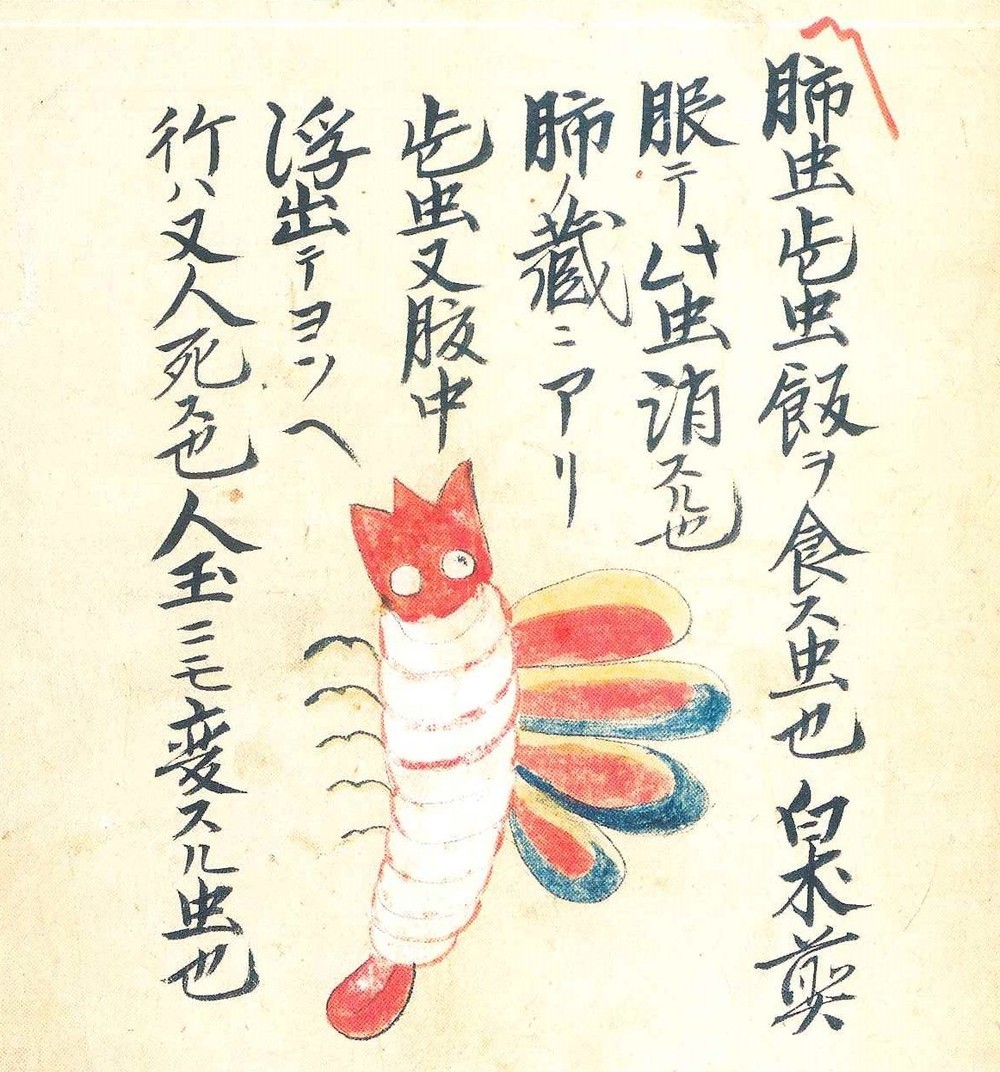 肺虫此虫飯ヲ食ス虫也 白朮煎
服テ此虫消スル也
肺ノ蔵ニアリ
此虫又腹中
浮出テヨソヘ
行ハ又人死ス也人玉ニモ変スル虫也